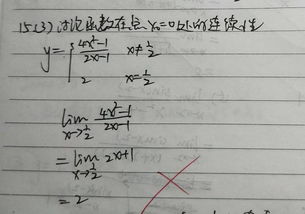 15(3) 讨论函数在点 x₀=0处的连续性
y= { (4x²-1)/(2x-1) x≠1/2
2 x=1/2
lim x→1/2 (4x²-1)/(2x-1)
= lim x→1/2 2x+1
= 2